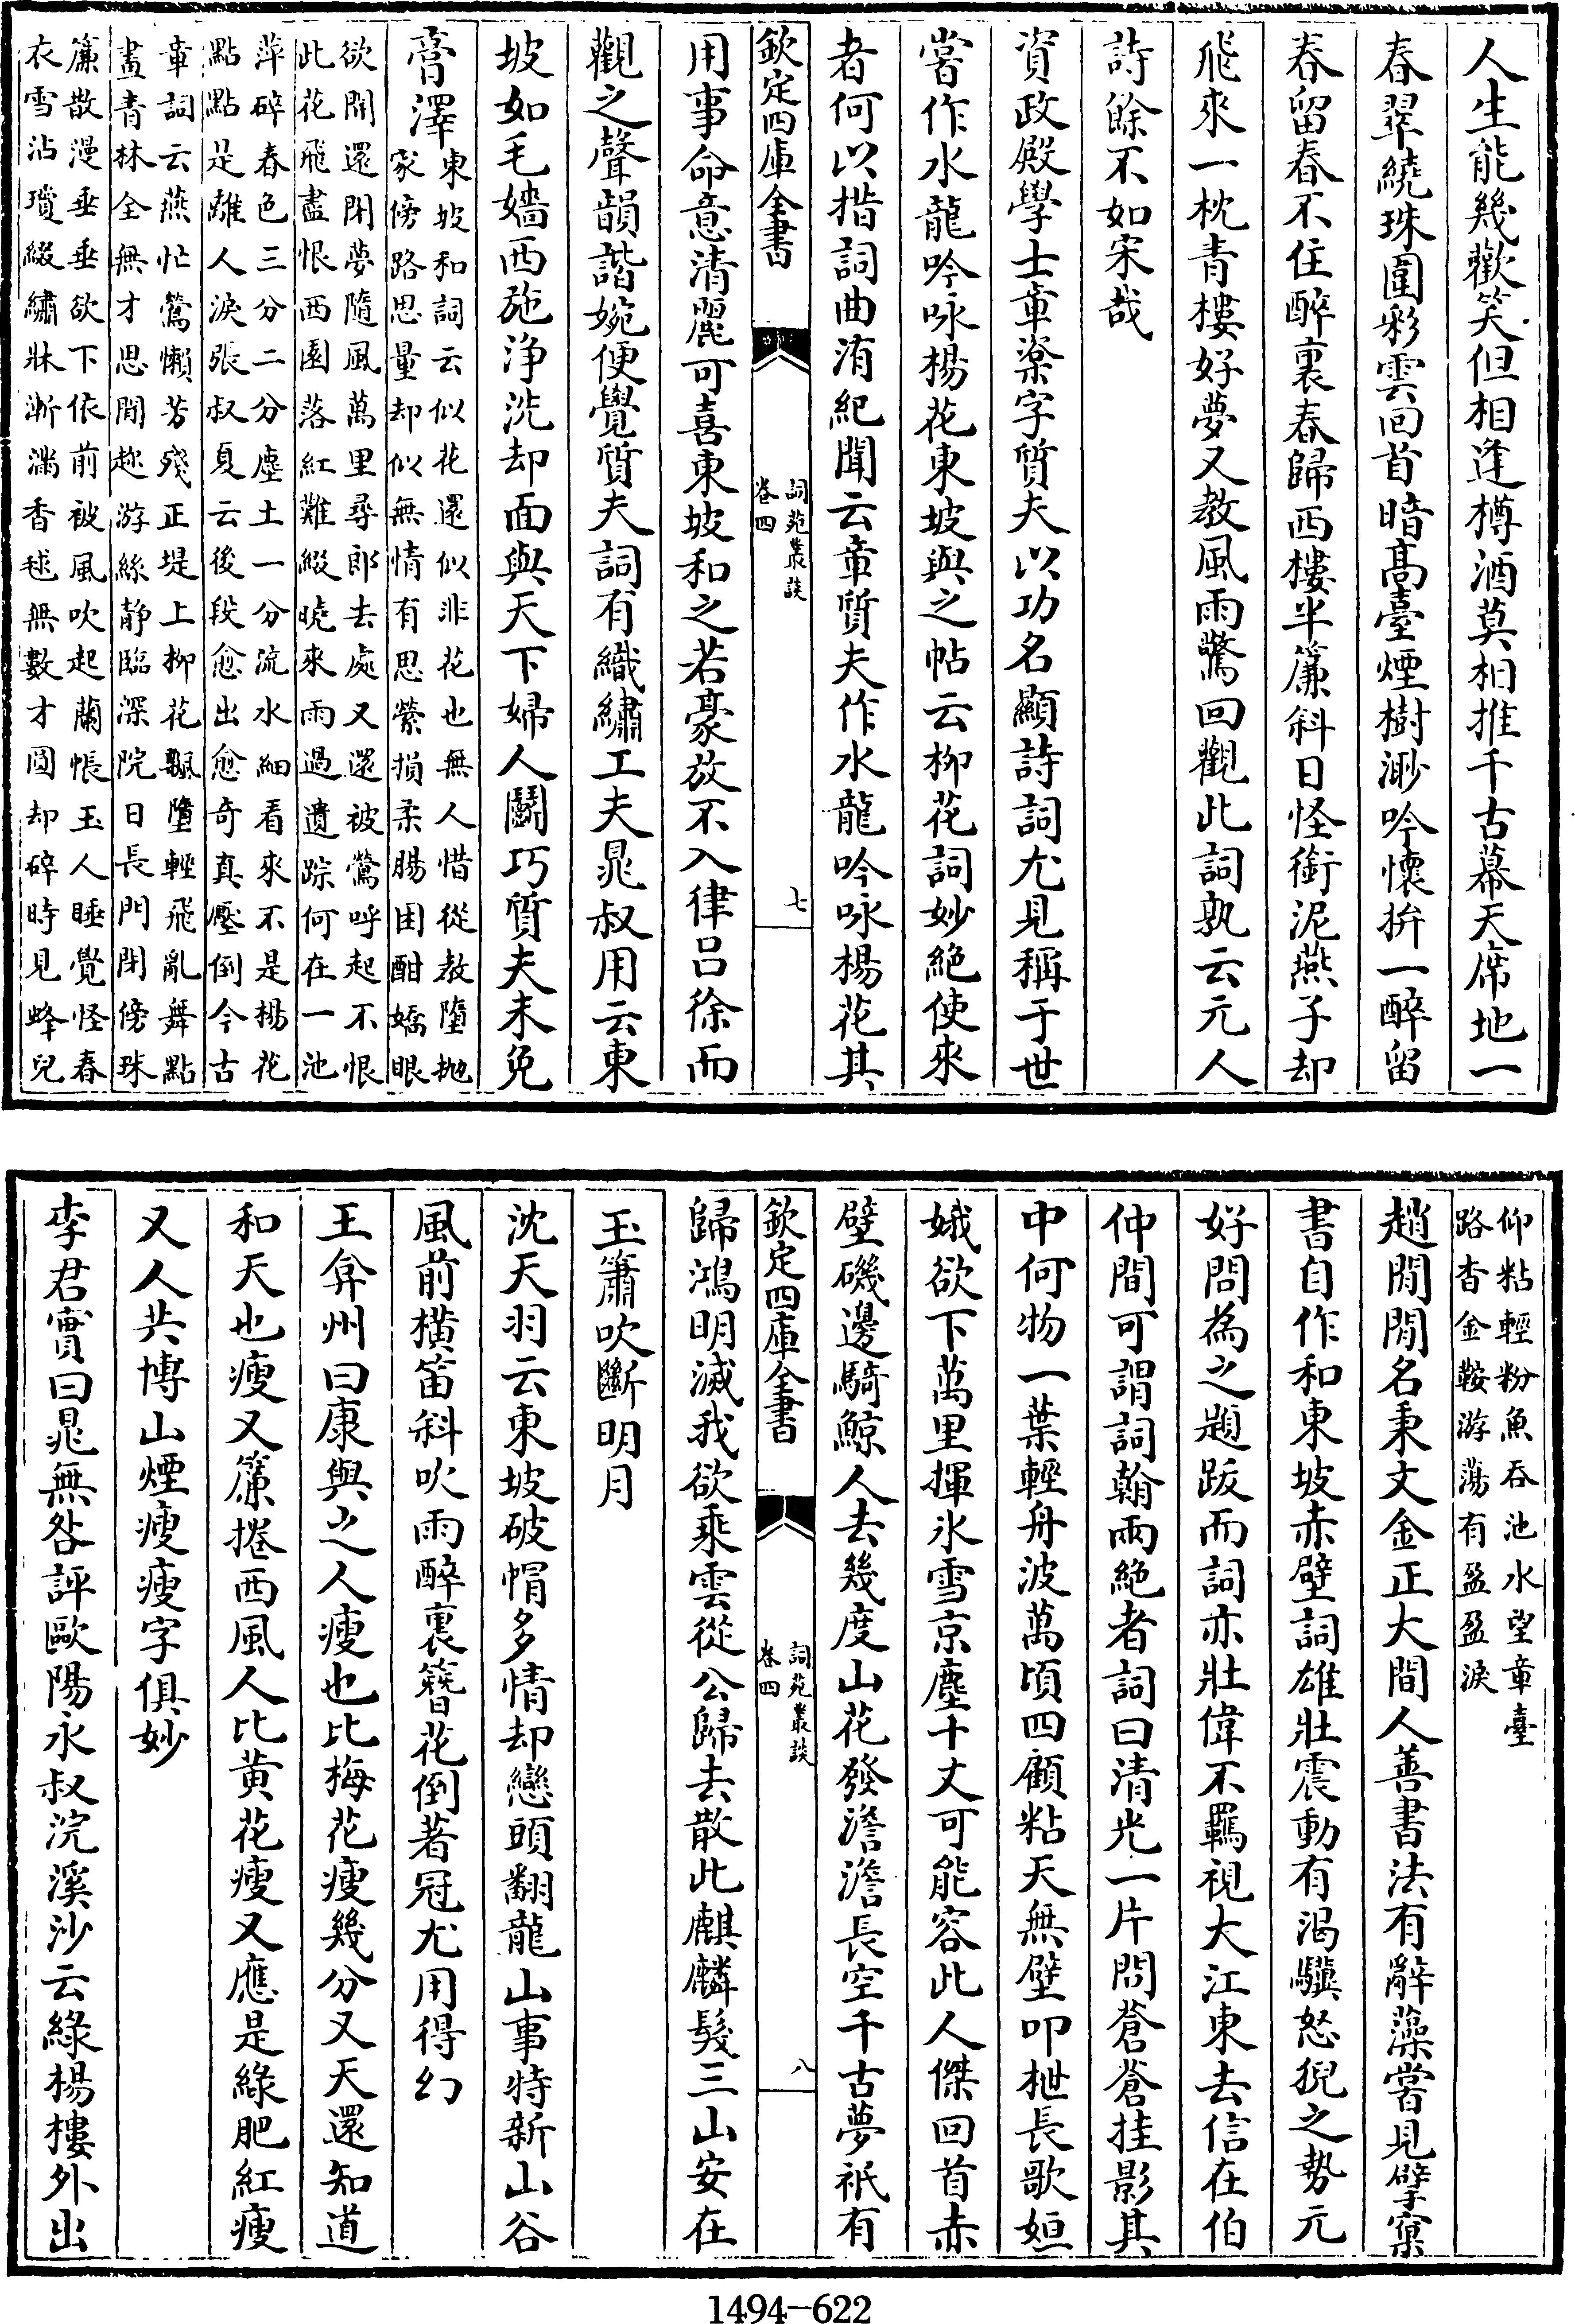 人生能幾歡笑但相逢樽酒莫相推千古幕天席地一
春翠繞珠圍彩雲回首暗髙臺煙樹渺吟懷拚一醉留
春留春不住醉裏春歸西樓半簾斜日怪銜泥燕子却
飛來一枕青樓好夢又教風雨驚回觀此詞孰云元人
詩餘不如宋哉
資政殿學士章楶字質夫以功名顯詩詞尤見稱于世
嘗作水龍吟咏楊花東坡與之帖云柳花詞妙絶使來
者何以措詞曲洧紀聞云章質夫作水龍吟咏楊花其
欽定四庫全書
詞苑叢談
卷四
七
用事命意清麗可喜東坡和之若豪放不入律呂徐而
觀之聲韻諧婉便覺質夫詞有織繡工夫晁叔用云東
坡如毛嬙西施浄洗却面與天下婦人鬭巧質夫未免
膏澤
東坡和詞云似花還似非花也無人惜從教墮拋
家傍路思量却似無情有思縈損柔腸困酣嬌眼
欲開還閉夢隨風萬里尋郎去處又還被鶯呼起不恨
此花飛盡恨西園落紅難綴曉來雨過遺踪何在一池
萍碎春色三分二分塵土一分流水細看來不是楊花
點點是離人淚張叔夏云後段愈出愈奇真壓倒今古
章詞云燕忙鶯懶芳殘正堤上柳花飄墮輕飛亂舞點
畫青林全無才思閒趂游絲静臨深院日長門閉傍珠
簾散漫垂垂欲下依前被風吹起蘭帳玉人睡覺怪春
衣雪沾瓊綴繡牀漸滿香毬無數才圓却碎時見蜂兒
仰粘輕粉魚吞池水望章臺
路杳金鞍游蕩有盈盈淚
趙閒閒名秉文金正大間人善書法有辭藻嘗見擘窠
書自作和東坡赤壁詞雄壯震動有渴驥怒猊之勢元
好問為之題跋而詞亦壯偉不羈視大江東去信在伯
仲間可謂詞翰兩絶者詞曰清光一片問蒼蒼挂影其
中何物一葉輕舟波萬頃四顧粘天無壁叩枻長歌姮
娥欲下萬里揮氷雪京塵十丈可能容此人傑回首赤
壁磯邊騎鯨人去幾度山花發澹澹長空千古夢祇有
欽定四庫全書
詞苑叢談
卷四
八
歸鴻明滅我欲乘雲從公歸去散此麒麟髮三山安在
玉簫吹斷明月
沈天羽云東坡破帽多情却戀頭翻龍山事特新山谷
風前橫笛斜吹雨醉裏簪花倒著冠尤用得幻
王弇州曰康與之人瘦也比梅花瘦幾分又天還知道
和天也瘦又簾捲西風人比黄花瘦又應是緑肥紅瘦
又人共博山煙瘦瘦字俱妙
李君實曰晁無咎評歐陽永叔浣溪沙云緑楊樓外出
1494-622